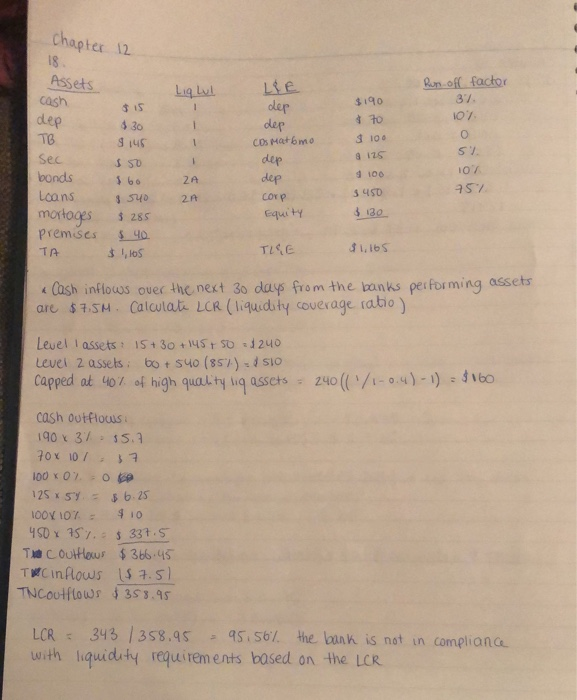 Chapter 12
18.
Assets Liq Lvl L&E Run-off factor
cash $15 1 dep $190 3%
dep $30 1 dep $70 10%
TB $145 1 CDs mat 6mo $100 0
Sec $50 1 dep $125 5%
bonds $60 2A dep $100 10%
Loans $540 2A corp $450 75%
mortages $285 Equity $130
premises $40
TA $1,165 TL&E $1,165
* Cash inflows over the next 30 days from the banks performing assets
are $7.5M. Calculate LCR (liquidity coverage ratio)
Level 1 assets: 15+30+145+50 = $240
Level 2 assets: 60+540(85%) = $510
Capped at 40% of high quality liq assets = 240((1/1-0.4)-1) = $160
cash outflows:
190 x 3% = $5.7
70 x 10% = $7
100 x 0% = 0
125 x 5% = $6.25
100 x 10% = $10
450 x 75% = $337.5
T C Outflows $366.45
T Cinflows ($7.5)
TNCoutflows $358.95
LCR = 343 / 358.95 = 95.56% the bank is not in compliance
with liquidity requirements based on the LCR